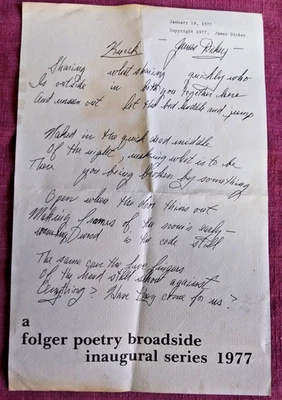 January 18, 1977
Copyright 1977, James Dickey
Knock
— James Dickey —
Sharing what sharing quickly who
Is outside in both you together here
And unseen out let the bed huddle and jump
Naked in the quick dead middle
Of the night, making what is to be
There you being broken by something
Open where the door thins out
Making frames of the room's early-
warning wood is the code still
The same can the five fingers
Of the hand still show against
Anything? Have they come for us?
a
folger poetry broadside
inaugural series 1977